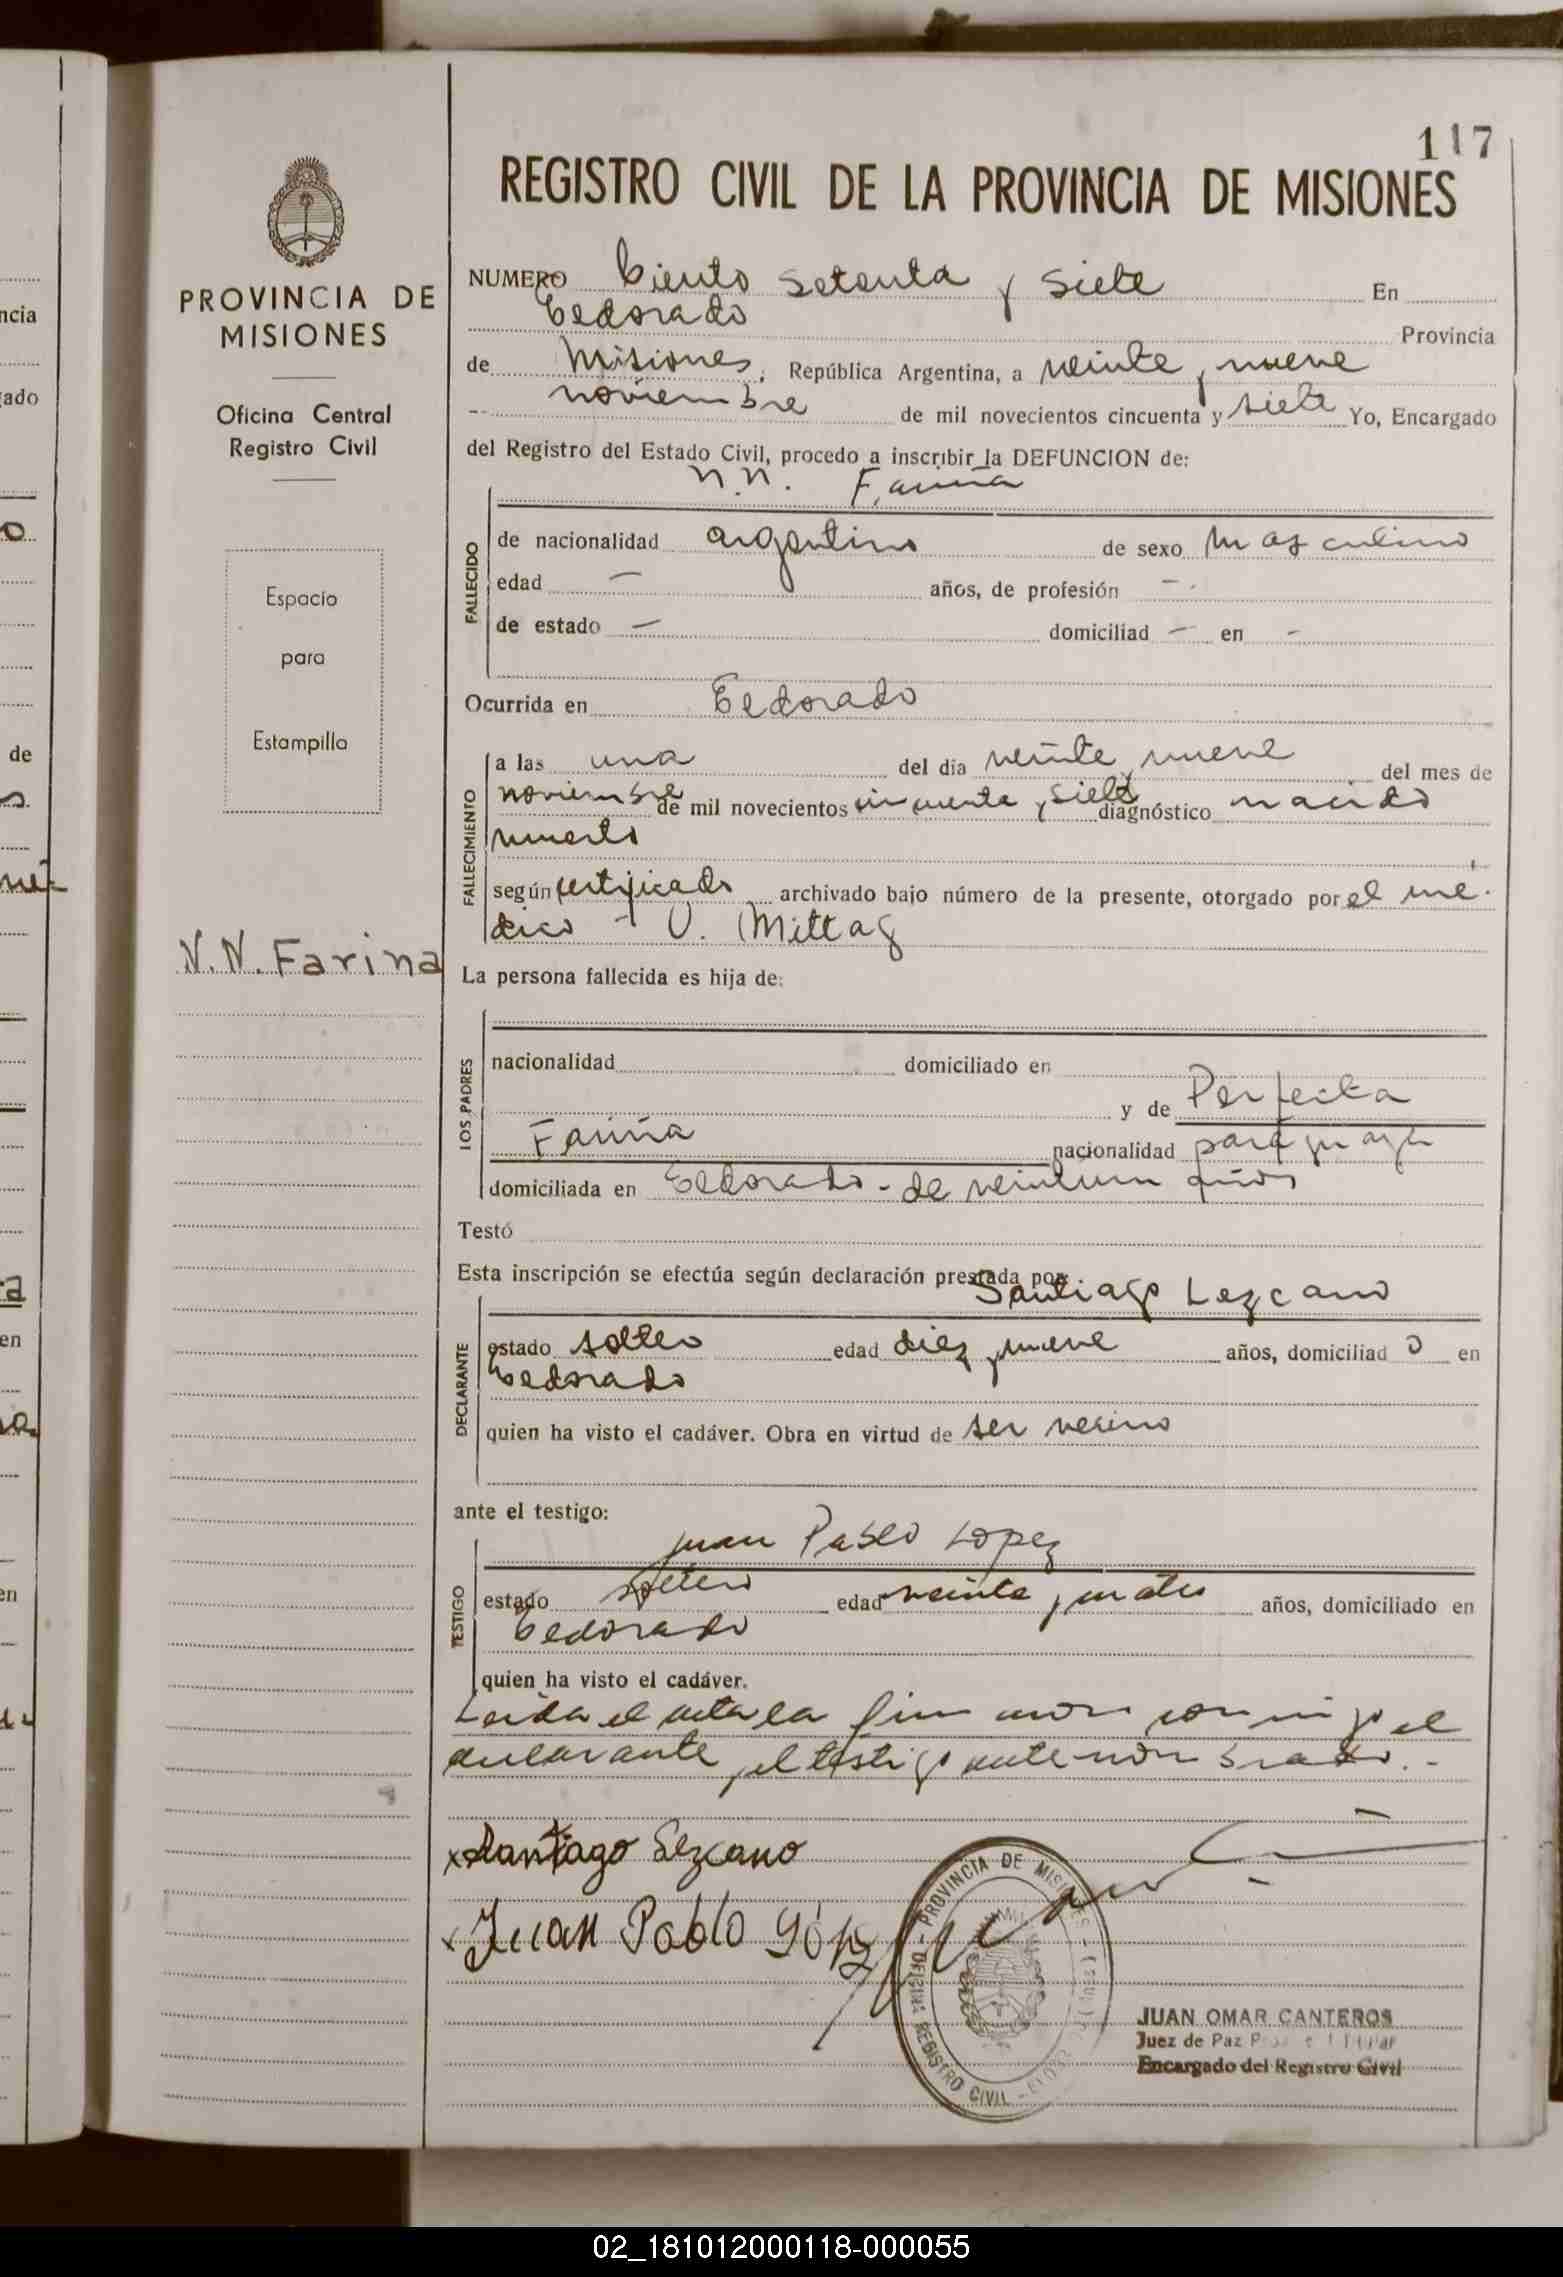 117
REGISTRO CIVIL DE LA PROVINCIA DE MISIONES
PROVINCIA DE
MISIONES
Oficina Central
Registro Civil
Espacio
para
Estampilla
N.N. Farina
NUMERO Ciento setenta y siete En
Eldorado Provincia
de Misiones, República Argentina, a veinte y nueve
noviembre de mil novecientos cincuenta y siete Yo, Encargado
del Registro del Estado Civil, procedo a inscribir la DEFUNCION de:
n.n. Fariña
FALLECIDO
de nacionalidad argentino de sexo masculino
edad — años, de profesión —.
de estado — domiciliad — en -
Ocurrida en Eldorado
FALLECIMIENTO
a las una del día veinte y nueve del mes de
noviembre de mil novecientos cincuenta y siete diagnóstico nacido
muerto
según certificado archivado bajo número de la presente, otorgado por el mé-
dico - U. Mittag
La persona fallecida es hija de:
LOS PADRES
nacionalidad domiciliado en
y de Perfecta
Fariña nacionalidad paraguaya
domiciliada en Eldorado - de veintiun años
Testó
Esta inscripción se efectúa según declaración prestada por
Santiago Lezcano
DECLARANTE
estado soltero edad diez y nueve años, domiciliad o en
Eldorado
quien ha visto el cadáver. Obra en virtud de ser vecino
ante el testigo:
Juan Pablo Lopez
TESTIGO
estado soltero edad veinte y cuatro años, domiciliado en
Eldorado
quien ha visto el cadáver.
Leida el acta la firmaron conmigo el
declarante y el testigo antenombrado.-
x Santiago Lezcano
x Juan Pablo López
PROVINCIA DE MISIONES
OFICINA REGISTRO CIVIL
JUAN OMAR CANTEROS
Juez de Paz
Encargado del Registro Civil
02_181012000118-000055